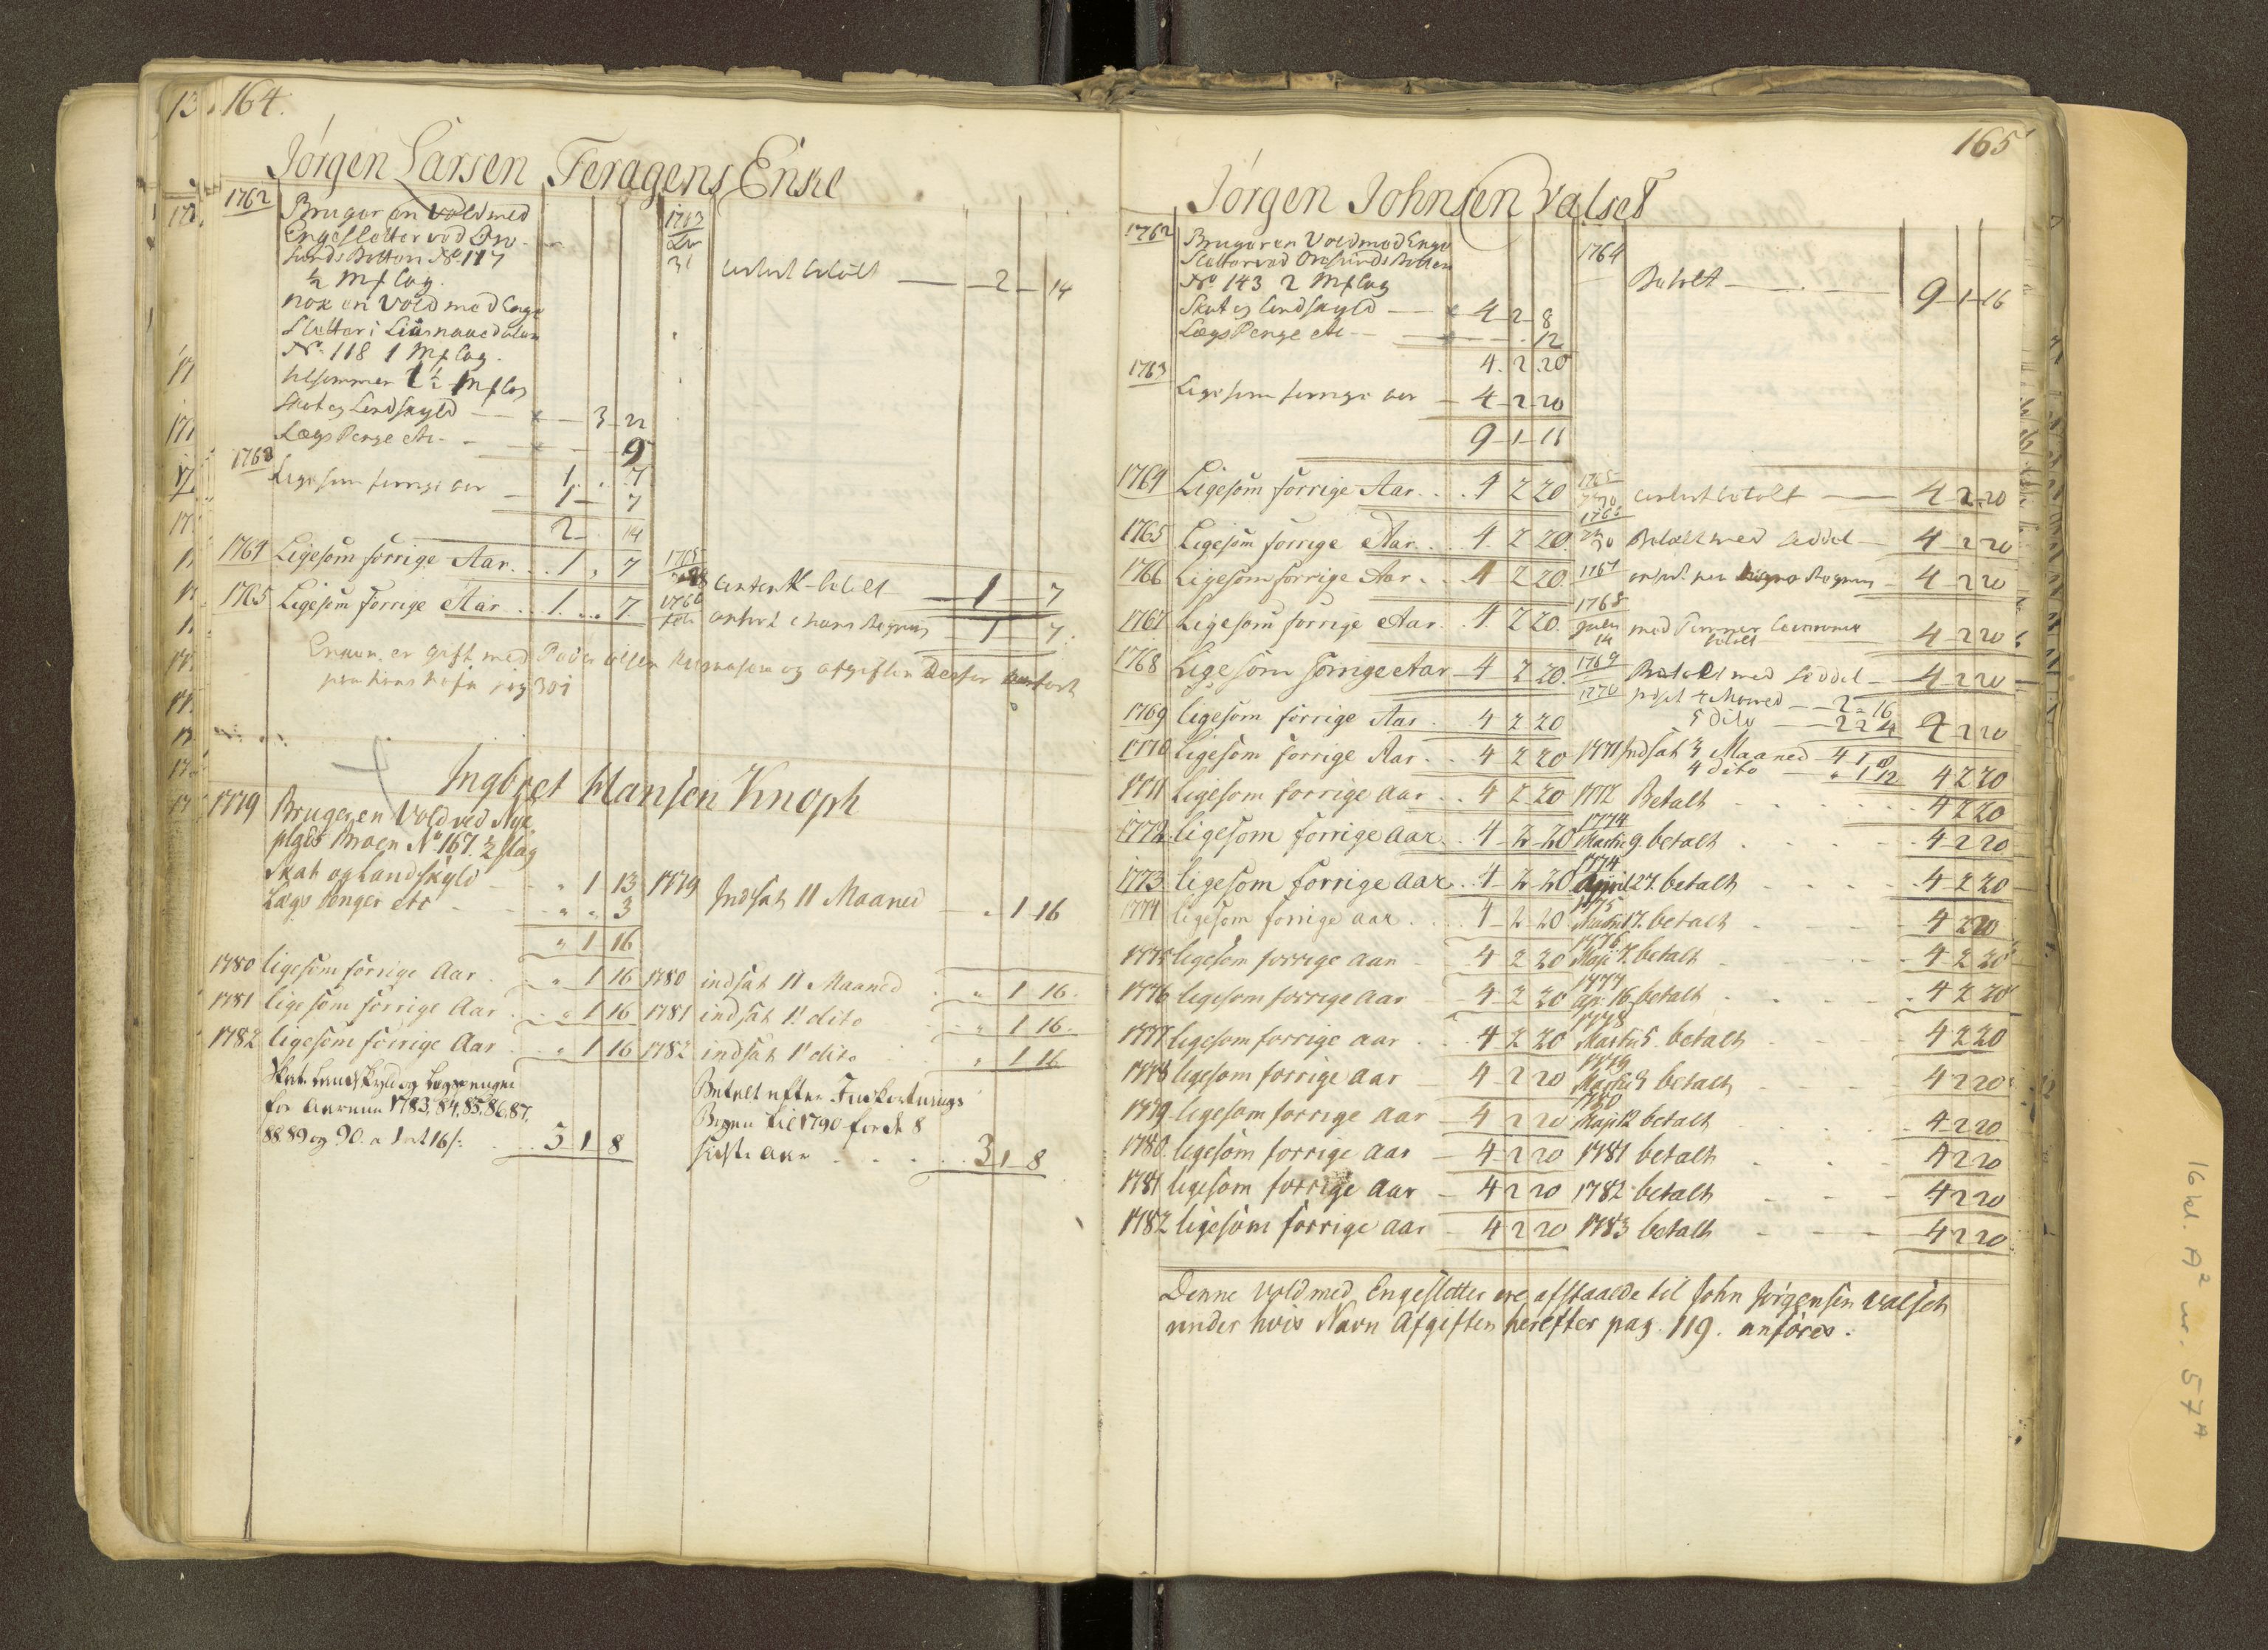 164.
Jörgen Larsen Feragens Enke
1762 Bruger en Vold med
Engesletter ved Ore-
sunds Volten No. 117
½ Mf lag.
nok en Vold med Enge
Sletter i
No. 118 1 Mf lag.
tilsammen 1½ Mf lag
Skat og Landskyld — 3 22
Lægs Penge etc — 9
1 . 7
1763 Ligesom forrige Aar — 1 — 7
2 — 14
1763
31 betalt — 2 — 14
1764 Ligesom forrige Aar . . 1 , 7
1765 betalt — 1 — 7
1765 Ligesom forrige Aar . . 1 . . . 7
1766 Feb. anfört i hans Regning — 1 — 7
Enken er gift med Peder Olsen og afgiften derfor anfört
paa hans Nafn pag 301
Ingbret Hansen Knoph
1779 Bruger en Vold ved
Broen No. 167. ½ flag
Skat og Landskyld - " 1 13
Lægs Penger etc - " " 3
" 1 16
1779 Indsat 11 Maaned — " 1 16
1780 ligesom forrige Aar . " 1 16 1780 indsat 11 Maaned . " 1 16.
1781 ligesom forrige Aar . " 1 16 1781 indsat 11 dito " 1 16.
1782 ligesom forrige Aar . " 1 16 1782 indsat 11 dito " 1 16
Skat Landskyld og Lægspenger
for Aarene 1783, 84, 85, 86, 87,
88 89 og 90. a 1 ort 16 s: . . 3 1 8
Betalt efter
Bogen til 1790 for de 8
sidste Aar . . . . 3 1 8
165
Jörgen Johnsen Valset
1762 Bruger en Vold med Enge
Sletter ved Oresunds Volten
No. 143 2 Mf lag
Skat og Landskyld — 4 2 8
Lægs Penge etc — . 12
4. 2. 20
1763
Ligesom forrige Aar — 4 2 20
9 — 1 — 16
1764
Betalt — . — 9 — 1 — 16
1764 Ligesom forrige Aar . . 4 2 20 1765 betalt — 4 2 20
1765 Ligesom forrige Aar . . 4 2 20. 1766 Betalt med Seddel — 4 2 20
1766 Ligesom forrige Aar . . 4 2 20. 1767 — 4 2 20
1767 Ligesom forrige Aar . 4 2 20. 1768 July 14 med Tömmer
betalt 4 2 20
1768 Ligesom forrige Aar — 4 2 20. 1769 Betalt med Seddel — 4 2 20
1769 ligesom forrige Aar . 4 2 20 1770 Indsat 4 Maaned — 2 " 16
5 dito — 2 2 4 4 2 20
1770 ligesom forrige Aar . . 4 2 20 1771 Indsat 3 Maaned 4 1 8
4 dito — " 1 12 4 2 20
1771 ligesom forrige Aar . . 4 2 20 1772 Betalt . . . . 4 2 20
1772 ligesom forrige Aar . . 4 2 20 1774 Martii 9. betalt . . . 4 2 20
1773 ligesom forrige Aar . . 4 2 20 1774 April 27. betalt . . . 4 2 20
1774 ligesom forrige Aar . . 4 2 20 1775 Martii 17. betalt . . . 4 2 20
1775 ligesom forrige Aar 4 2 20 1776 Maji 7. betalt . . . 4 2 20
1776 ligesom forrige Aar — 4 2 20 1777 Apr. 16 betalt . . . . 4 2 20
1777 ligesom forrige Aar . . 4 2 20 1778 Martii 5. betalt . . . 4 2 20
1778 ligesom forrige Aar 4 2 20 1779 Martii 9 betalt . . . 4 2 20
1779 ligesom forrige Aar — 4 2 20 1780 Maji 12 betalt . . . . 4 2 20
1780. ligesom forrige Aar — 4 2 20 1781 betalt . . . 4 2 20
1781 ligesom forrige Aar — 4 2 20 1782 betalt - - - 4 2 20
1782 ligesom forrige Aar — 4 2 20 1783 betalt - - - 4 2 20
Denne Vold med Engesletter ere afstaaede til John Jörgensen Valset
under hvis Navn Afgiften herefter pag. 119. anföres.
16 kl. A² nr. 57 A